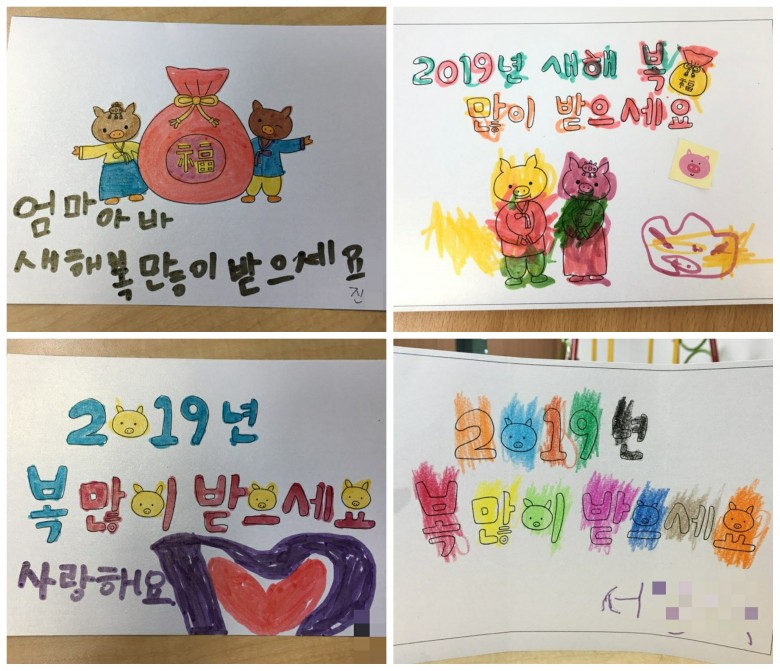 福
엄마아바
새해복만이받으세요
진
2019년 새해 복
福
많이 받으세요
2019년
복 많이 받으세요
사랑해요
2019년
복 많이 받으세요
서